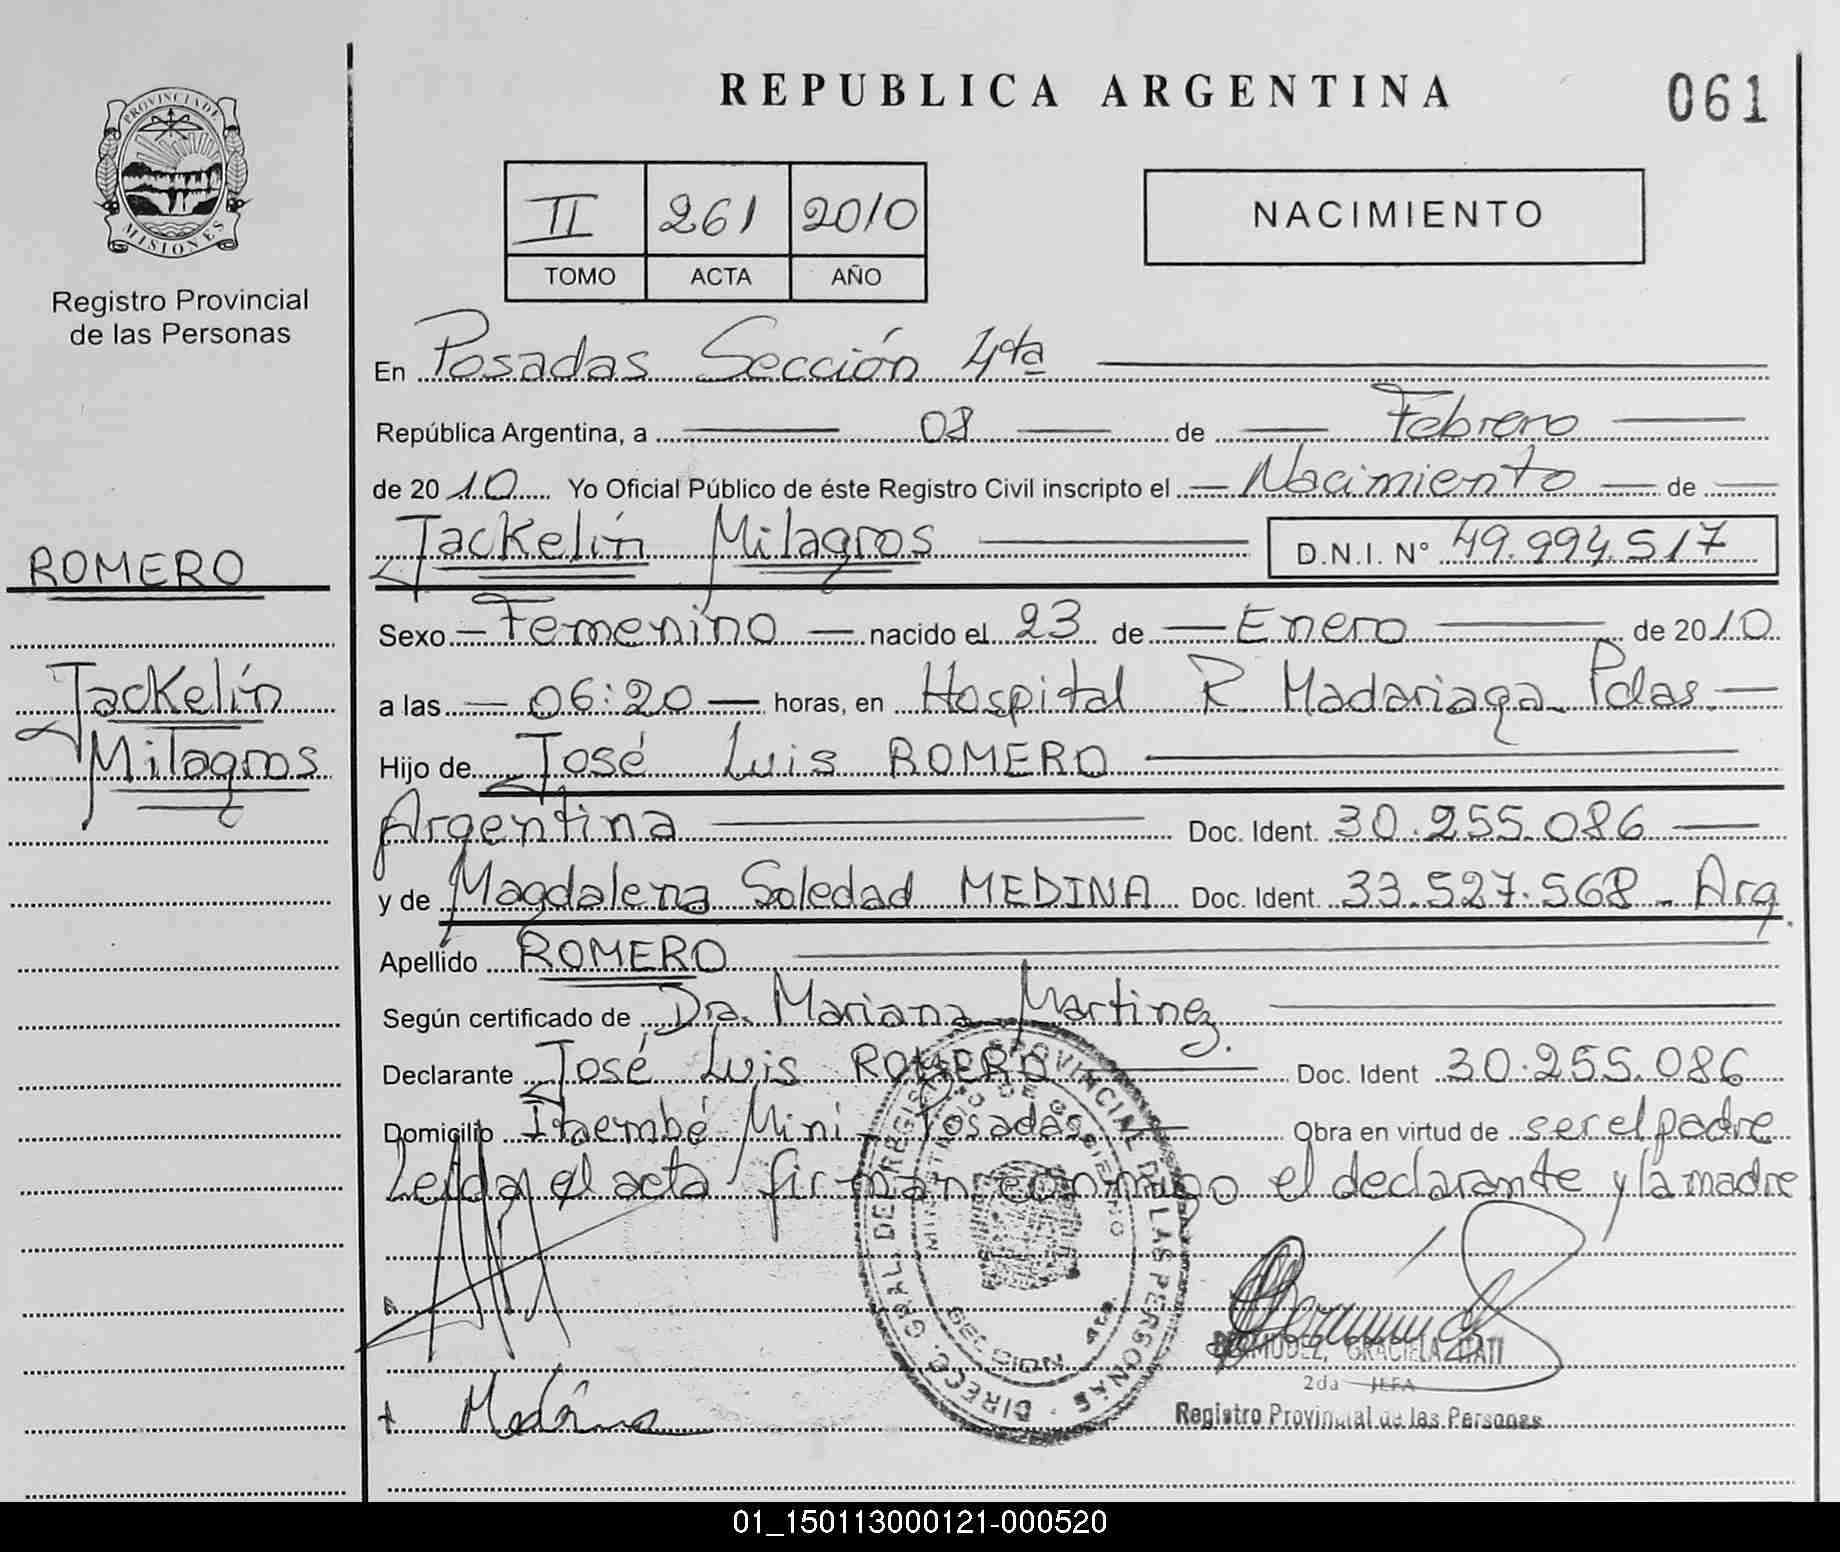 REPUBLICA ARGENTINA
061
PROVINCIA DE
MISIONES
Registro Provincial
de las Personas
II 261 2010
TOMO ACTA AÑO
NACIMIENTO
En Posadas Sección 4ta
República Argentina, a 08 de Febrero
de 2010 Yo Oficial Público de éste Registro Civil inscripto el Nacimiento de
Jackelín Milagros D.N.I. N° 49.994.517
ROMERO
Jackelín
Milagros
Sexo Femenino nacido el 23 de Enero de 2010
a las 06:20 horas, en Hospital R. Madariaga Pdas.
Hijo de José Luis ROMERO
Argentina Doc. Ident. 30.255.086
y de Magdalena Soledad MEDINA Doc. Ident. 33.527.568 - Arg.
Apellido ROMERO
Según certificado de Dra. Mariana Martinez.
Declarante José Luis ROMERO Doc. Ident 30.255.086
Domicilio Itaembé Mini - Posadas Obra en virtud de ser el padre
Leída el acta firman conmigo el declarante y la madre
DIREC. GRAL. DE REGISTRO PROVINCIAL DE LAS PERSONAS
MINISTERIO DE GOBIERNO
Medina
BERMUDEZ, GRACIELA ITATI
2da JEFA
Registro Provincial de las Personas
01_150113000121-000520